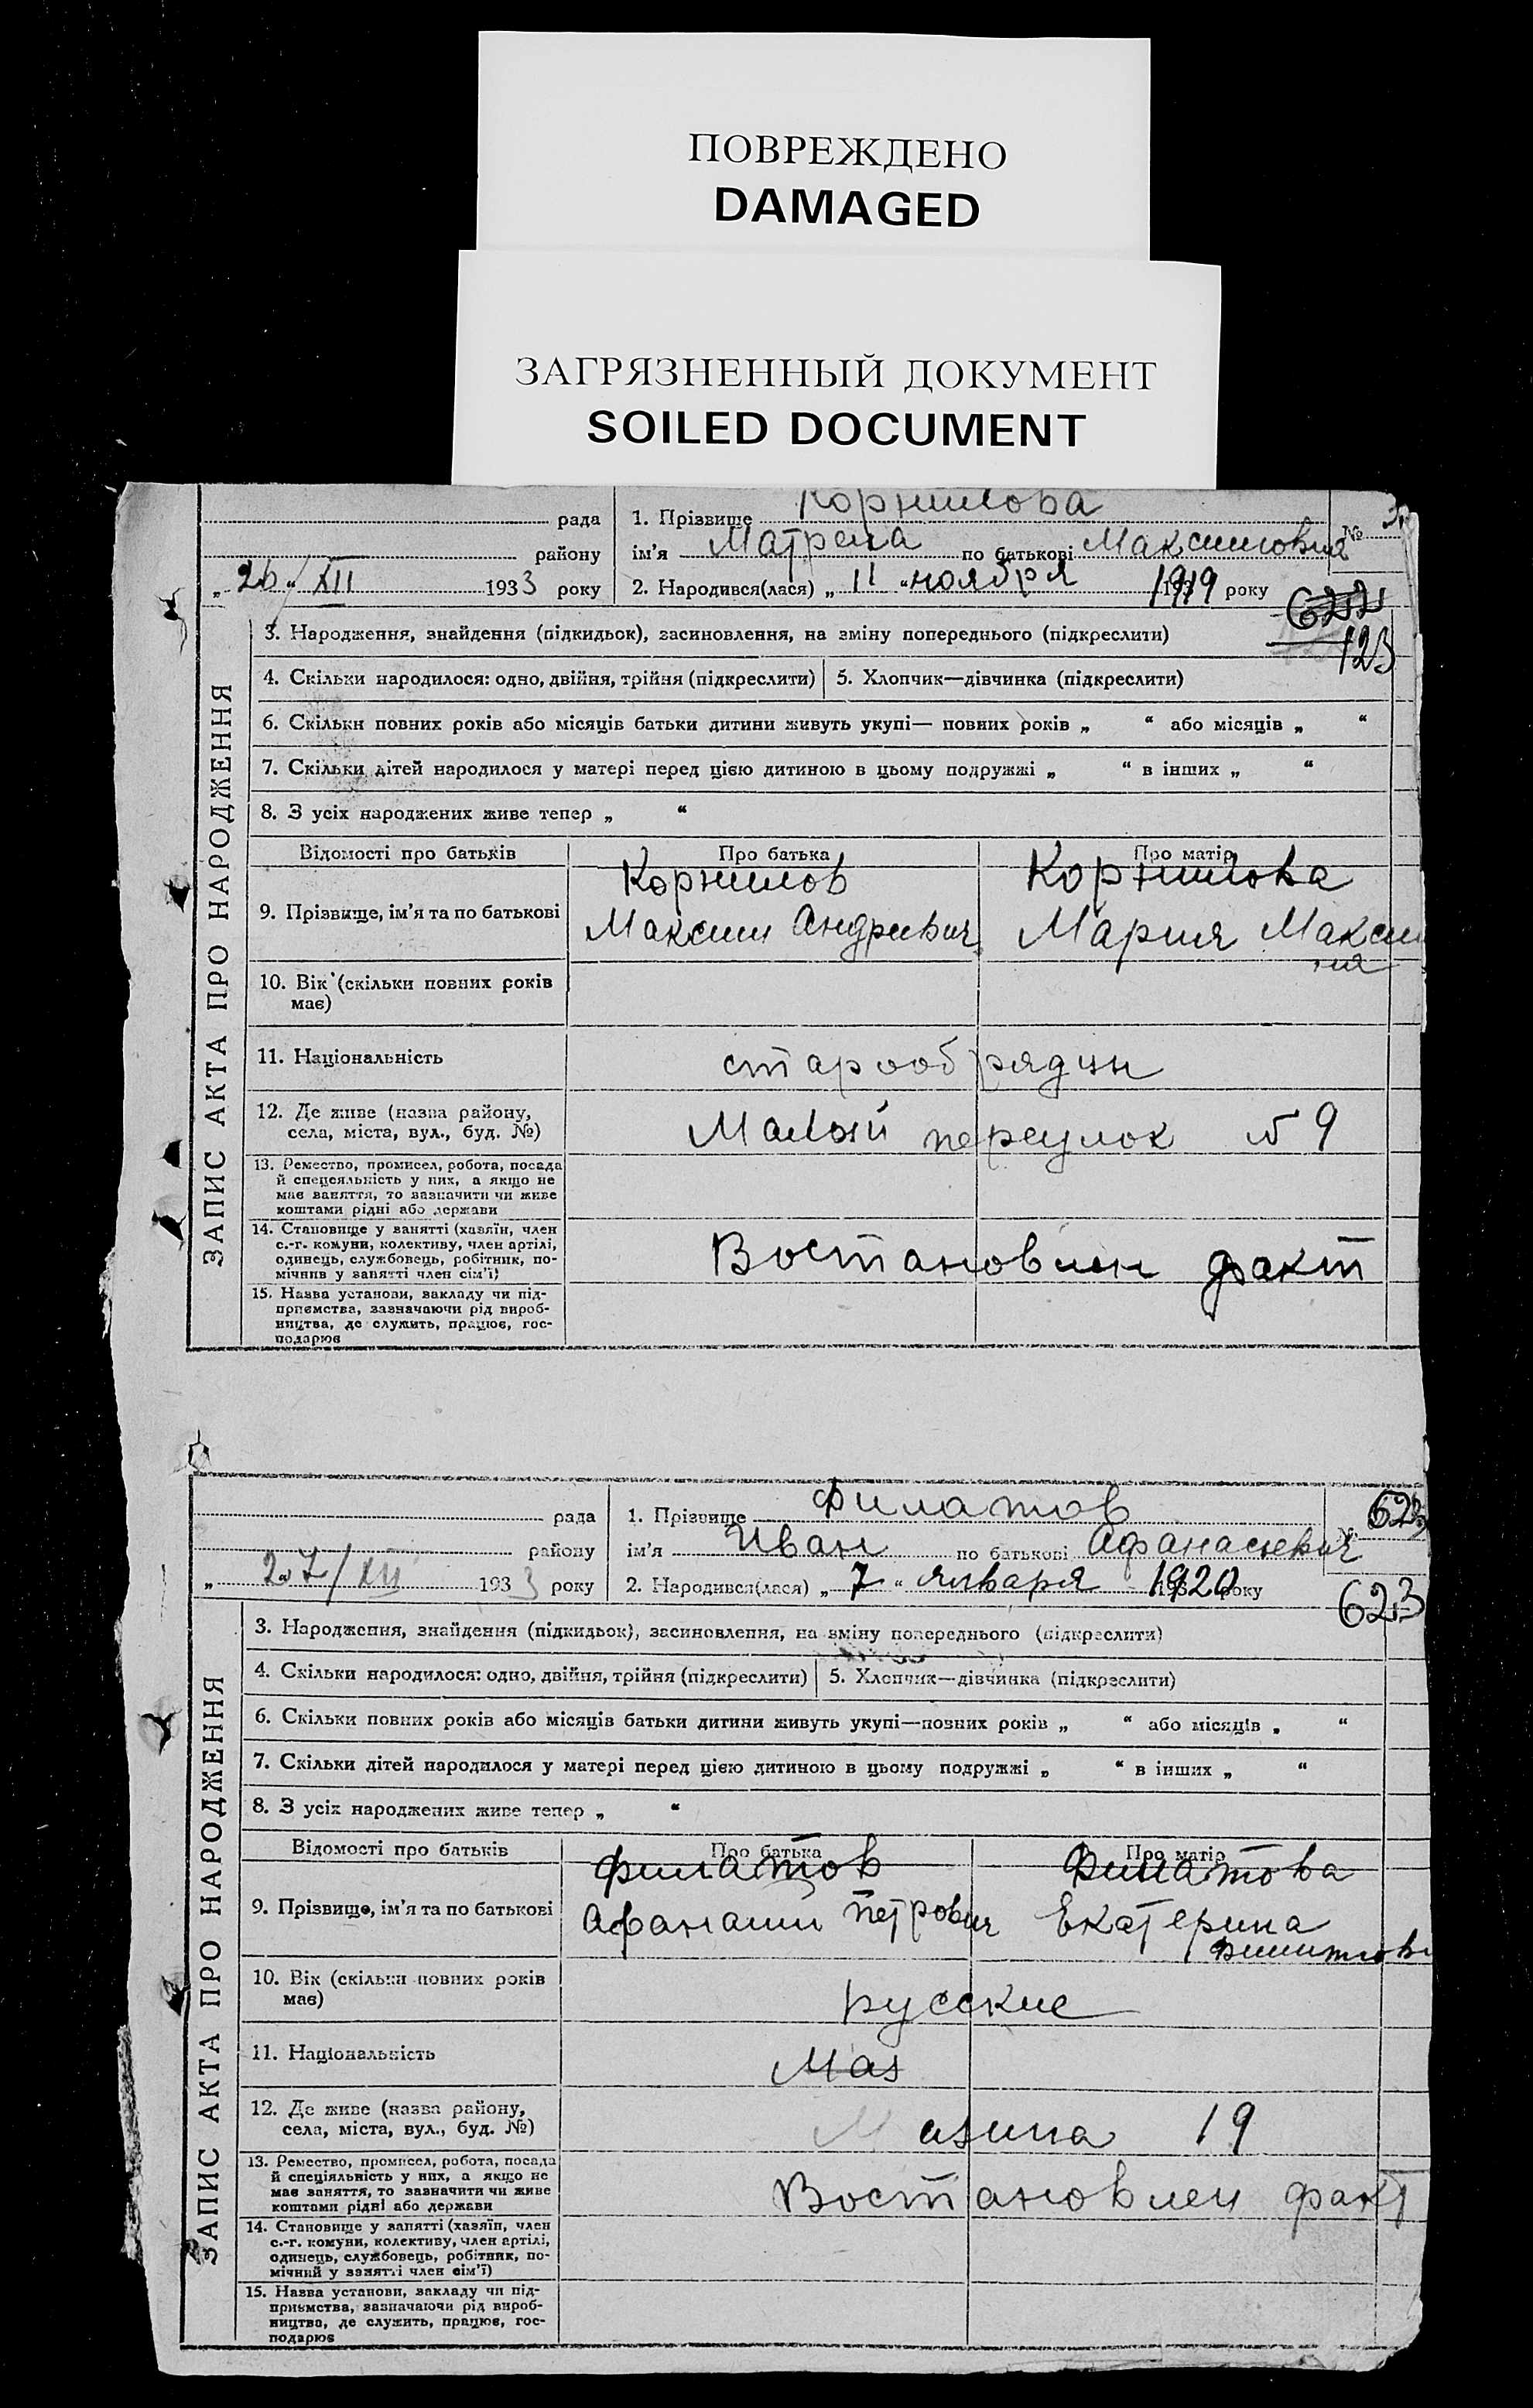 ПОВРЕЖДЕНО
DAMAGED
ЗАГРЯЗНЕННЫЙ ДОКУМЕНТ
SOILED DOCUMENT
ЗАПИС АКТА ПРО НАРОДЖЕННЯ
рада 1. Прізвище Корнилова №
району ім'я Матрена по батькові Максимовна
„ 26 “ XII 1933 року 2. Народився(лася) „ 11 “ ноября 1919 року
622
123
3. Народження, знайдення (підкидьок), засиновлення, на зміну попереднього (підкреслити)
4. Скільки народилося: одно, двійня, трійня (підкреслити) 5. Хлопчик—дівчинка (підкреслити)
6. Скільки повних років або місяців батьки дитини живуть укупі— повних років „ “ або місяців „ “
7. Скільки дітей народилося у матері перед цією дитиною в цьому подружжі „ “ в інших „ “
8. З усіх народжених живе тепер „ “
Відомості про батьків Про батька Про матір
Корнилов Корнилова
9. Прізвище, ім'я та по батькові Максим Андреевич Мария Максим
10. Вік (скільки повних років
має)
11. Національність старообрядцы
12. Де живе (назва району,
села, міста, вул., буд. №) Малый переулок № 9
13. Ремество, промисел, робота, посада
й спецеяльність у них, а якщо не
має заняття, то зазначити чи живе
коштами рідні або держави
14. Становище у занятті (хазяїн, член
с.-г. комуни, колективу, член артілі,
одинець, службовець, робітник, по-
мічник у занятті член сім'ї) Востановлен факт
15. Назва установи, закладу чи під-
приємства, зазначаючи рід вироб-
ництва, де служить, працює, гос-
подарює
ЗАПИС АКТА ПРО НАРОДЖЕННЯ
рада 1. Прізвище Филатов 623
району ім'я Иван по батькові Афанасиевич
„ 27/XII 1933 року 2. Народився(лася) „ 7 “ января 1920 року
623
3. Народження, знайдення (підкидьок), засиновлення, на зміну попереднього (підкреслити)
4. Скільки народилося: одно, двійня, трійня (підкреслити) 5. Хлопчик—дівчинка (підкреслити)
6. Скільки повних років або місяців батьки дитини живуть укупі—повних років „ “ або місяців „ “
7. Скільки дітей народилося у матері перед цією дитиною в цьому подружжі „ “ в інших „ “
8. З усіх народжених живе тепер „ “
Відомості про батьків Про батька Про матір
Филатов Филатова
9. Прізвище, ім'я та по батькові Афанасий Петрович Екатерина
10. Вік (скільки повних років
має) русские
11. Національність Маз
12. Де живе (назва району,
села, міста, вул., буд. №) Мазина 19
13. Ремество, промисел, робота, посада
й спеціяльність у них, а якщо не
має заняття, то зазначити чи живе
коштами рідні або держави Востановлен факт
14. Становище у занятті (хазяїн, член
с.-г. комуни, колективу, член артілі,
одинець, службовець, робітник, по-
мічний у занятті член сім'ї)
15. Назва установи, закладу чи під-
приємства, зазначаючи рід вироб-
ництва, де служить, працює, гос-
подарює